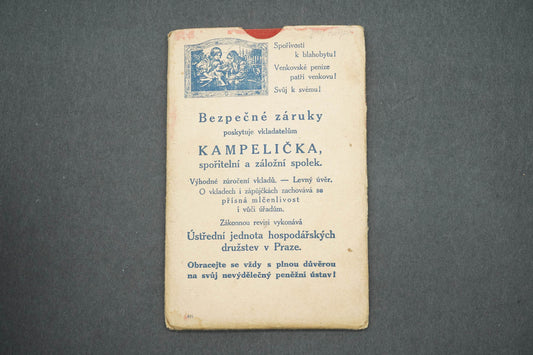 Spořivostí
k blahobytu!
Venkovské peníze
patří venkovu!
Svůj k svému!
Bezpečné záruky
poskytuje vkladatelům
KAMPELIČKA,
spořitelní a záložní spolek.
Výhodné zúročení vkladů. — Levný úvěr.
O vkladech i zápůjčkách zachovává se
přísná mlčenlivost
i vůči úřadům.
Zákonnou revisi vykonává
Ústřední jednota hospodářských
družstev v Praze.
Obracejte se vždy s plnou důvěrou
na svůj nevýdělečný peněžní ústav!